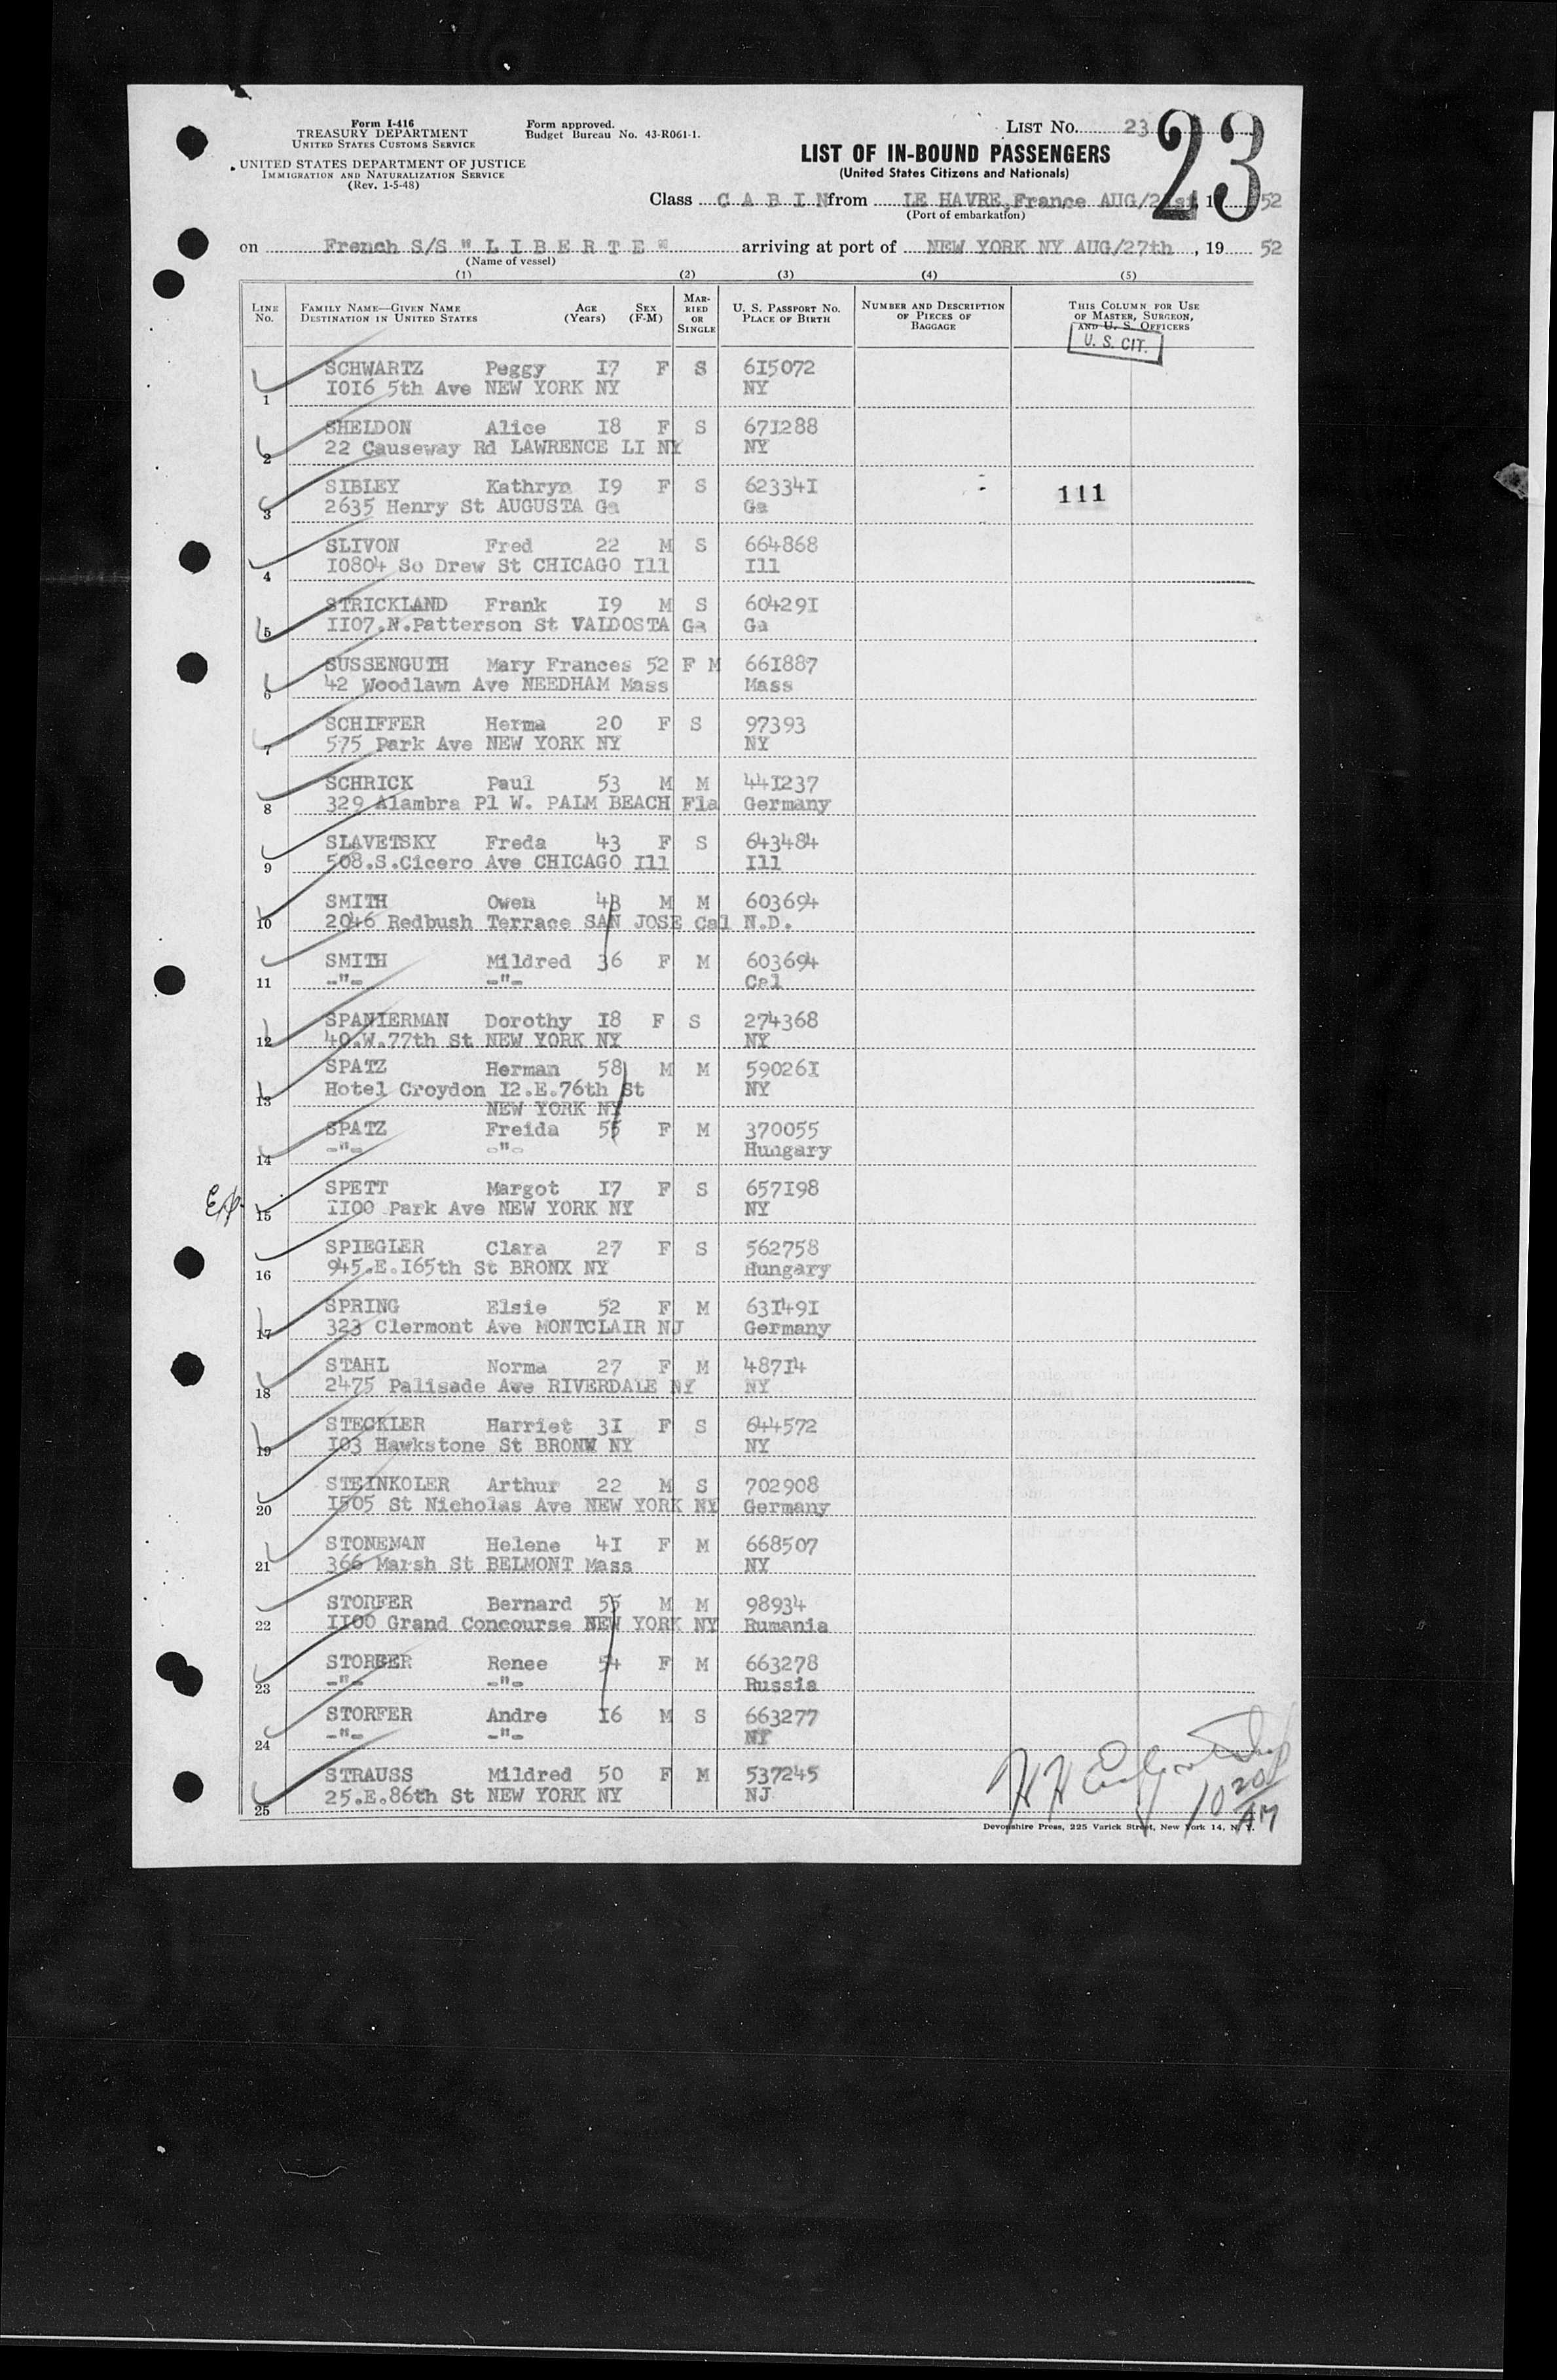 Form I-416
TREASURY DEPARTMENT
UNITED STATES CUSTOMS SERVICE
UNITED STATES DEPARTMENT OF JUSTICE
IMMIGRATION AND NATURALIZATION SERVICE
(Rev. 1-5-48)
Form approved.
Budget Bureau No. 43-R061-1.
LIST No. 23
23
LIST OF IN-BOUND PASSENGERS
(United States Citizens and Nationals)
Class C A B I N from LE HAVRE, France AUG/21st, 19 52
(Port of embarkation)
on French S/S " L I B E R T E " arriving at port of NEW YORK NY AUG/27th, 19 52
(Name of vessel)
(1) (2) (3) (4) (5)
LINE No. FAMILY NAME—GIVEN NAME DESTINATION IN UNITED STATES AGE (Years) SEX (F-M) MARRIED OR SINGLE U. S. PASSPORT No. PLACE OF BIRTH NUMBER AND DESCRIPTION OF PIECES OF BAGGAGE THIS COLUMN FOR USE OF MASTER, SURGEON, AND U. S. OFFICERS
U. S. CIT.
SCHWARTZ Peggy I7 F S 6I5072
1 I0I6 5th Ave NEW YORK NY NY
SHELDON Alice I8 F S 67I288
2 22 Causeway Rd LAWRENCE LI NY NY
SIBLEY Kathryn I9 F S 62334I 111
3 2635 Henry St AUGUSTA Ga Ga
SLIVON Fred 22 M S 664868
4 I0804 So Drew St CHICAGO Ill Ill
STRICKLAND Frank I9 M S 60429I
5 II07.N.Patterson St VALDOSTA Ga Ga
SUSSENGUTH Mary Frances 52 F M 66I887
6 42 Woodlawn Ave NEEDHAM Mass Mass
SCHIFFER Herma 20 F S 97393
7 575 Park Ave NEW YORK NY NY
SCHRICK Paul 53 M M 44I237
8 329 Alambra Pl W. PALM BEACH Fla Germany
SLAVETSKY Freda 43 F S 643484
9 508.S.Cicero Ave CHICAGO Ill Ill
SMITH Owen 43 M M 603694
10 2046 Redbush Terrace SAN JOSE Cal N.D.
SMITH Mildred 36 F M 603694
11 -"- -"- Cal
SPANIERMAN Dorothy I8 F S 274368
12 40.W.77th St NEW YORK NY NY
SPATZ Herman 58 M M 59026I
13 Hotel Croydon I2.E.76th St NY
NEW YORK NY
SPATZ Freida 55 F M 370055
14 -"- -"- Hungary
SPETT Margot I7 F S 657I98
15 II00 Park Ave NEW YORK NY NY
SPIEGLER Clara 27 F S 562758
16 945.E.I65th St BRONX NY Hungary
SPRING Elsie 52 F M 63I49I
17 323 Clermont Ave MONTCLAIR NJ Germany
STAHL Norma 27 F M 487I4
18 2475 Palisade Ave RIVERDALE NY NY
STECKLER Harriet 3I F S 644572
19 I03 Hawkstone St BRONX NY NY
STEINKOLER Arthur 22 M S 702908
20 I505 St Nicholas Ave NEW YORK NY Germany
STONEMAN Helene 4I F M 668507
21 366 Marsh St BELMONT Mass NY
STORFER Bernard 55 M M 98934
22 II00 Grand Concourse NEW YORK NY Rumania
STORFER Renee 54 F M 663278
23 -"- -"- Russia
STORFER Andre I6 M S 663277
24 -"- -"- NY
STRAUSS Mildred 50 F M 537245
25 25.E.86th St NEW YORK NY NJ
10 20 AM
Devonshire Press, 225 Varick Street, New York 14, N. Y.